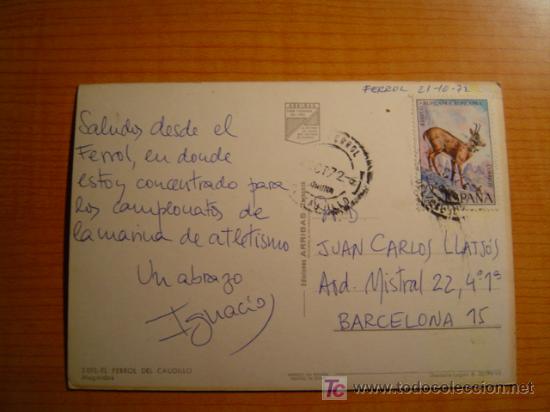 FERROL 21-10-72
Saludos desde el
Ferrol, en donde
estoy concentrado para
los campeonatos de
la marina de atletismo
Un abrazo
Ignacio
Ediciones ARRIBAS
FERROL
OCT 72
ESPAÑA
JUAN CARLOS LLATJÓS
Avd. Mistral 22, 4º 1ª
BARCELONA 15
EL FERROL DEL CAUDILLO
TC www.todocoleccion.net